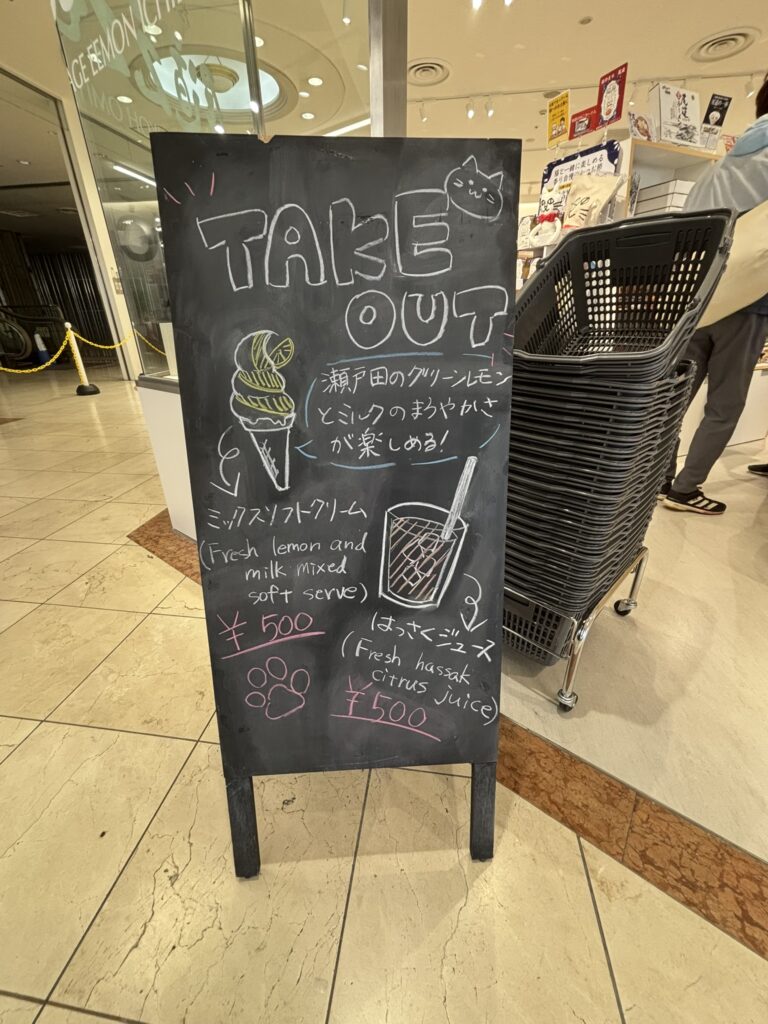 TAKE
OUT
瀬戸田のグリーンレモン
とミルクのまろやかさ
が楽しめる!
ミックスソフトクリーム
(Fresh lemon and
milk mixed
soft serve)
¥500
はっさくジュース
(Fresh hassak
citrus juice)
¥500